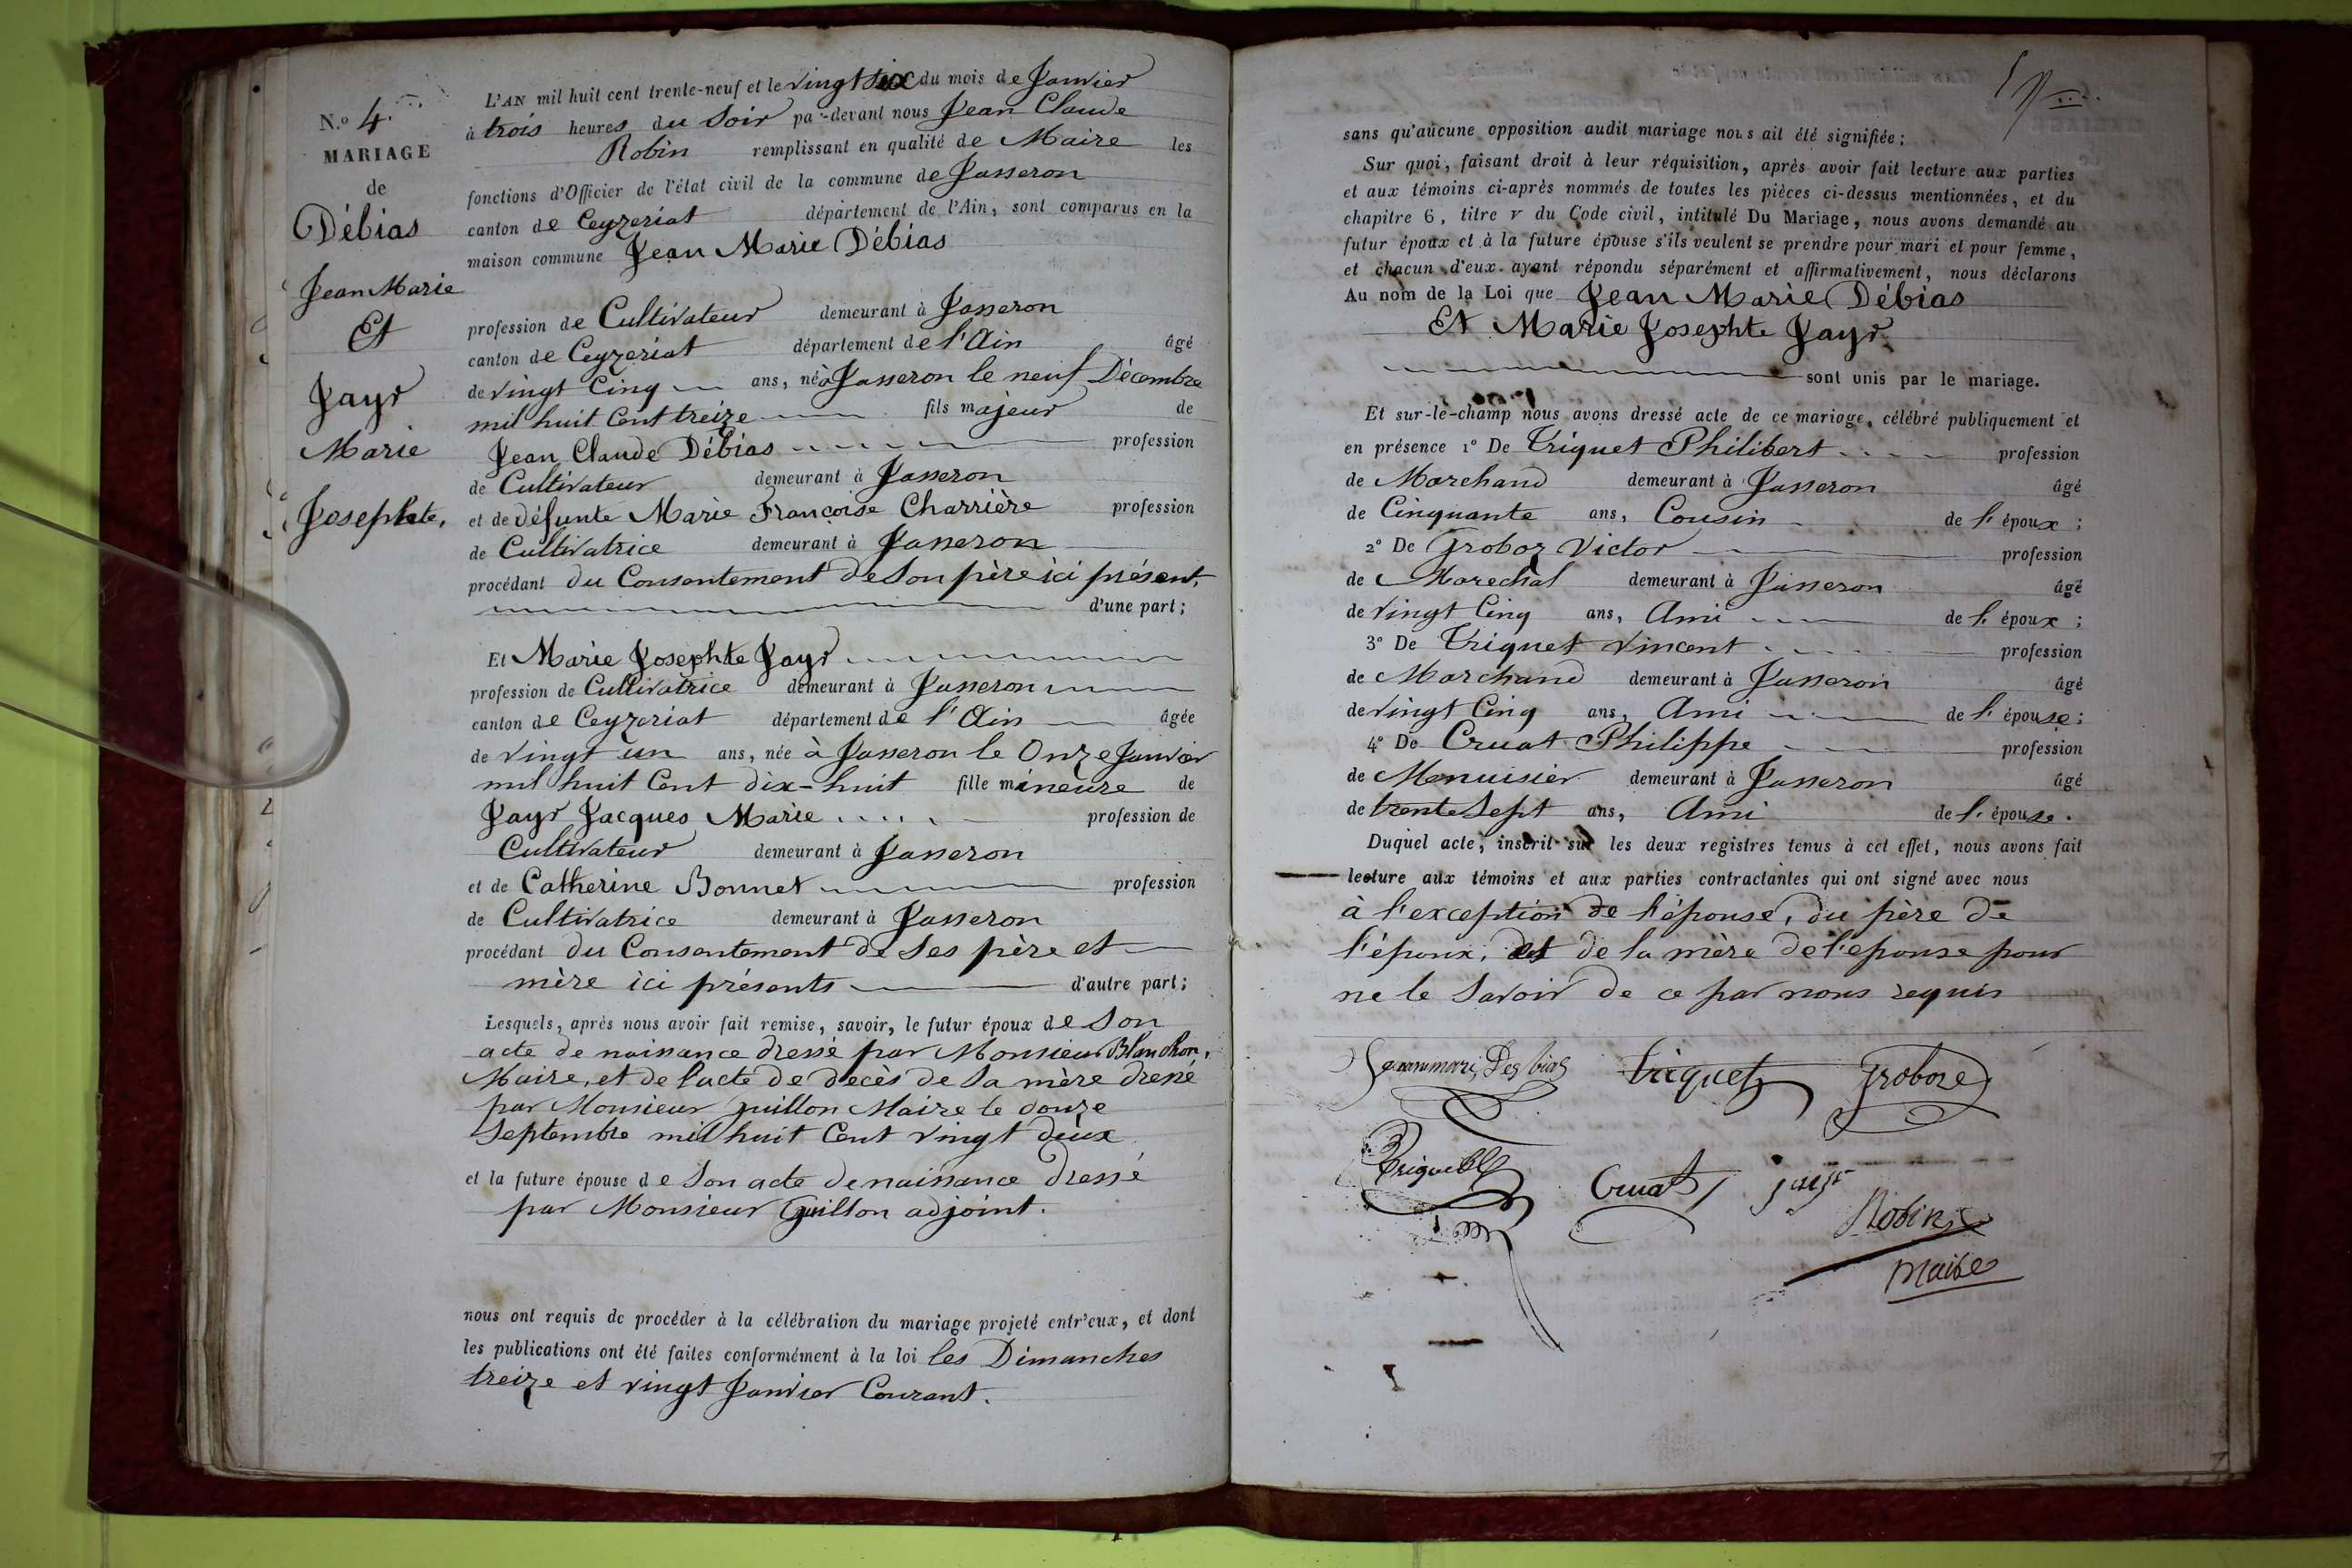 N.o 4.
MARIAGE
de
Débias
Jean Marie
Et
Jayr
Marie
Josephte,
L'AN mil huit cent trente-neuf et le vingt six du mois de Janvier
à trois heures du Soir pa-devant nous Jean Claude
Robin remplissant en qualité de Maire les
fonctions d'Officier de l'état civil de la commune de Jasseron
canton de Ceyzeriat département de l'Ain, sont comparus en la
maison commune Jean Marie Débias
profession de Cultivateur demeurant à Jasseron
canton de Ceyzeriat département de l'Ain âgé
de vingt Cinq ans, né à Jasseron le neuf Décembre
mil huit Cent treize fils majeur de
Jean Claude Débias profession
de Cultivateur demeurant à Jasseron
et de défunte Marie Françoise Charrière profession
de Cultivatrice demeurant à Jasseron
procédant du Consentement de Son père ici présent,
d'une part;
Et Marie Josephte Jayr
profession de Cultivatrice demeurant à Jasseron
canton de Ceyzeriat département de l'Ain âgée
de vingt un ans, née à Jasseron le Onze Janvier
mil huit Cent dix-huit fille mineure de
Jayr Jacques Marie profession de
Cultivateur demeurant à Jasseron
et de Catherine Bonnet profession
de Cultivatrice demeurant à Jasseron
procédant du Consentement de Ses père et
mère ici présents d'autre part;
Lesquels, après nous avoir fait remise, savoir, le futur époux de Son
acte de naissance dressé par Monsieur Blanchon,
Maire, et de l'acte de decès de Sa mère dressé
par Monsieur Guillon Maire le douze
Septembre mil huit Cent vingt deux
et la future épouse de Son acte de naissance dressé
par Monsieur Guillon adjoint.
nous ont requis de procéder à la célébration du mariage projeté entr'eux, et dont
les publications ont été faites conformément à la loi les Dimanches
treize et vingt Janvier Courant.
sans qu'aucune opposition audit mariage nous ait été signifiée;
Sur quoi, faisant droit à leur réquisition, après avoir fait lecture aux parties
et aux témoins ci-après nommés de toutes les pièces ci-dessus mentionnées, et du
chapitre 6, titre v du Code civil, intitulé Du Mariage, nous avons demandé au
futur époux et à la future épouse s'ils veulent se prendre pour mari et pour femme,
et chacun d'eux ayant répondu séparément et affirmativement, nous déclarons
Au nom de la Loi que Jean Marie Débias
Et Marie Josephte Jayr
sont unis par le mariage.
Et sur-le-champ nous avons dressé acte de ce mariage, célébré publiquement et
en présence 1° De Triquet Philibert profession
de Marchand demeurant à Jasseron âgé
de Cinquante ans, Cousin de l'époux;
2° De Groboz Victor profession
de Marechal demeurant à Jasseron âgé
de vingt Cinq ans, Ami de l'époux;
3° De Triquet Vincent profession
de Marchand demeurant à Jasseron âgé
de vingt Cinq ans, Ami de l'épouse;
4° De Cruat Philippe profession
de Menuisier demeurant à Jasseron âgé
de trente Sept ans, Ami de l'épouse.
Duquel acte, inscrit sur les deux registres tenus à cet effet, nous avons fait
lecture aux témoins et aux parties contractantes qui ont signé avec nous
à l'exception de l'épouse, du père de
l'époux, et de la mère de l'epouse pour
ne le Savoir de ce par nous requis
Jeanmari Desbias Triquet Groboze
Triquet Cruat jayr
Robin
Maire